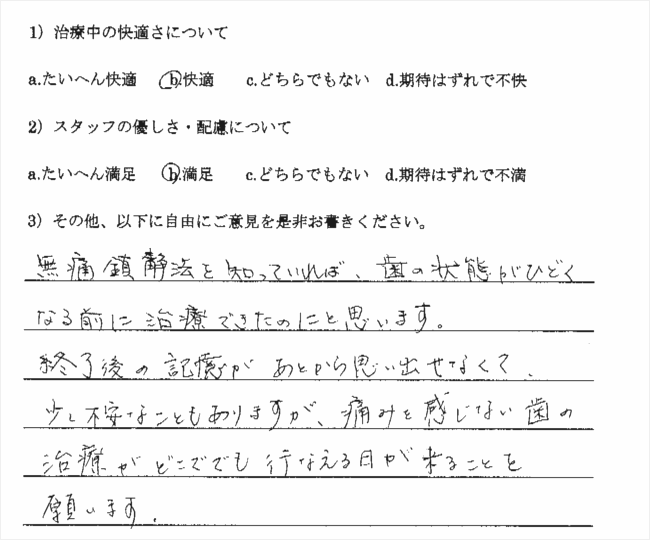 1）治療中の快適さについて
a.たいへん快適　b.快適　c.どちらでもない　d.期待はずれで不快
2）スタッフの優しさ・配慮について
a.たいへん満足　b.満足　c.どちらでもない　d.期待はずれで不満
3）その他、以下に自由にご意見を是非お書きください。
無痛鎮静法を知っていれば、歯の状態がひどく
なる前に治療できたのにと思います。
終了後の記憶があとから思い出せなくて、
少し不安なこともありますが、痛みを感じない歯の
治療がどこででも行なえる日が来ることを
願います。